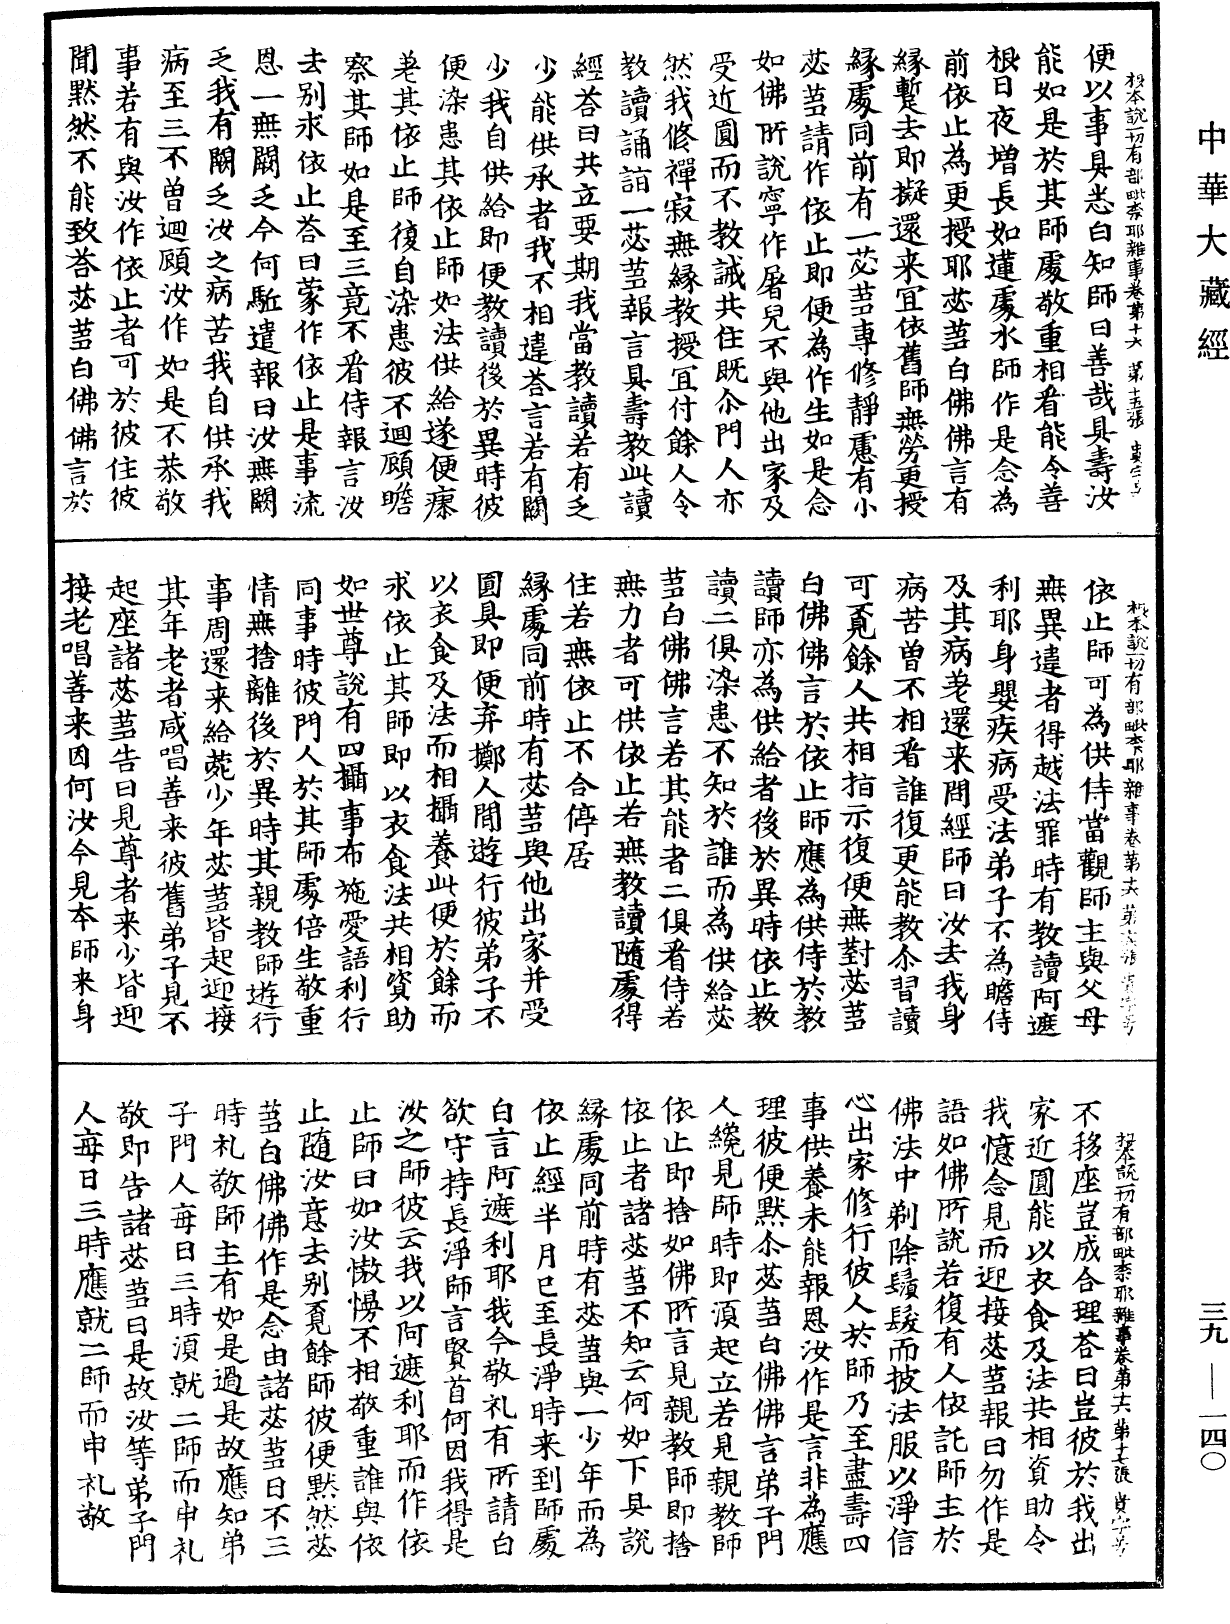 中華大藏經
根本說一切有部毗奈耶雜事卷第十六 第十五張
便以事具悉白知師曰善哉具壽汝
能如是於其師處敬重相看能令善
根日夜增長如蓮處水師作是念為
前依止為更授耶苾芻白佛佛言有
緣蹔去即擬還来冝依舊師無勞更授
緣處同前有一苾芻專修靜慮有小
苾芻請作依止即便為作生如是念
如佛所說寧作屠兒不與他出家及
受近圓而不教誡共住既尒門人亦
然我修禪寂無緣教授冝付餘人令
教讀誦詣一苾芻報言具壽教此讀
經荅曰共立要期我當教讀若有乏
少能供承者我不相違荅言若有闕
少我自供給即便教讀後於異時彼
便染患其依止師如法供給遂便瘵
差其依止師復自染患彼不迴顧瞻
察其師如是至三竟不看侍報言汝
去別求依止荅曰蒙作依止是事流
恩一無闕乏今何駈遣報曰汝無闕
乏我有闕乏汝之病苦我自供承我
病至三不曾迴顧汝作如是不恭敬
事若有與汝作依止者可於彼住彼
聞黙然不能致荅苾芻白佛佛言於
根本說一切有部毗奈耶雜事卷第十六
依止師可為供侍當觀師主與父母
無異違者得越法罪時有教讀阿遮
利耶身嬰疾病受法弟子不為瞻侍
及其病差還来問經師曰汝去我身
病苦曾不相看誰復更能教尒習讀
可覓餘人共相指示復便無對苾芻
白佛佛言於依止師應為供侍於教
讀師亦為供給者後於異時依止教
讀二俱染患不知於誰而為供給苾
芻白佛佛言若其能者二俱看侍若
無力者可供依止若無教讀隨處得
住若無依止不合停居
緣處同前時有苾芻與他出家并受
圓具即便弃擲人間遊行彼弟子不
以衣食及法而相攝養此便於餘而
求依止其師即以衣食法共相資助
如世尊說有四攝事布施愛語利行
同事時彼門人於其師處倍生敬重
情無捨離後於異時其親教師遊行
事周還来給菀少年苾芻皆起迎接
其年老者咸唱善来彼舊弟子見不
起座諸苾芻告曰見尊者来少皆迎
接老唱善来因何汝今見本師来身
根本說一切有部毗奈耶雜事卷第十六 第十七張
不移座豈成合理荅曰豈彼於我出
家近圓能以衣食及法共相資助令
我憶念見而迎接苾芻報曰勿作是
語如佛所說若復有人依託師主於
佛法中剃除鬚髮而披法服以淨信
心出家修行彼人於師乃至盡壽四
事供養未能報恩汝作是言非為應
理彼便黙尒苾芻白佛佛言弟子門
人纔見師時即須起立若見親教師
依止即捨如佛所言見親教師即捨
依止者諸苾芻不知云何如下具說
緣處同前時有苾芻與一少年而為
依止經半月已至長淨時来到師處
白言阿遮利耶我今敬礼有所請白
欲守持長淨師言賢首何因我得是
汝之師彼云我以阿遮利耶而作依
止師曰如汝慠慢不相敬重誰與依
止隨汝意去別覓餘師彼便黙然苾
芻白佛佛作是念由諸苾芻日不三
時礼敬師主有如是過是故應知弟
子門人每日三時須就二師而申礼
敬即告諸苾芻曰是故汝等弟子門
人每日三時應就二師而申礼敬
三九—一四〇